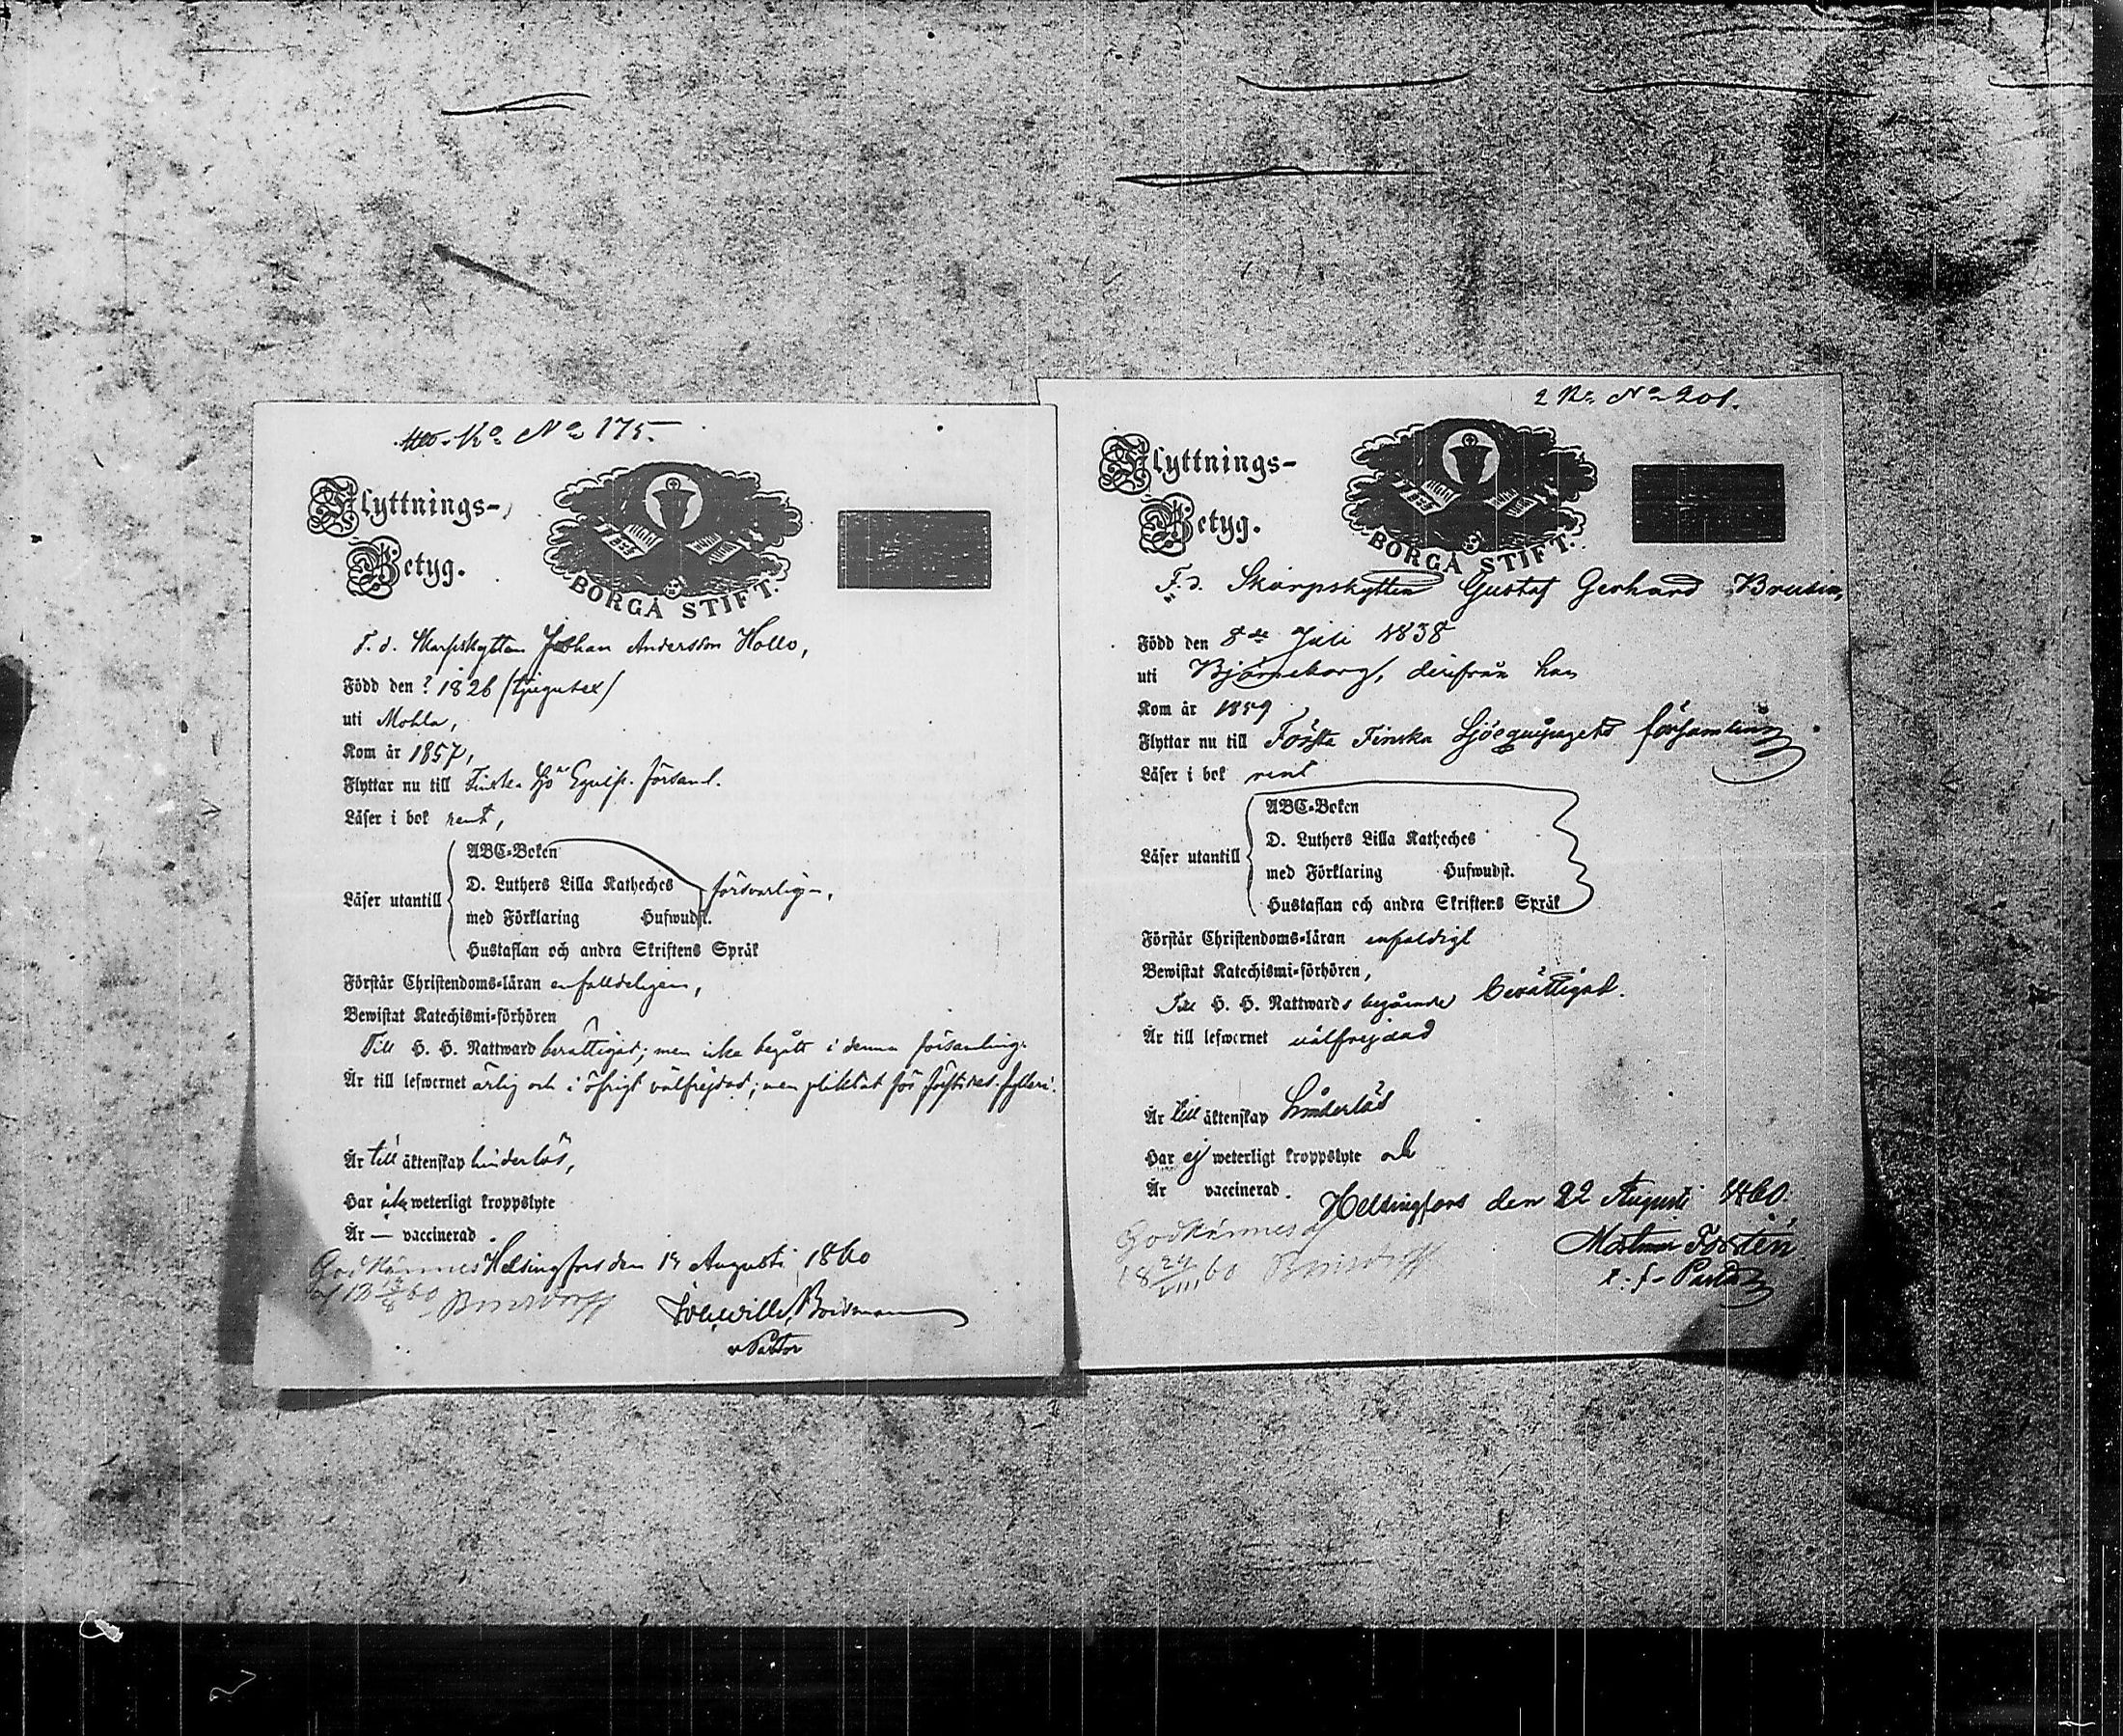 No 175.
Flyttnings-
Betyg.
BORGÅ STIFT.
F. d. Skarpskytten Johan Andersson Hollo,
Född den ? 1826 (tjugusex)
uti Mohla,
Kom år 1857,
Flyttar nu till Finska Sjö Equip. församl.
Läser i bok rent,
Läser utantill
ABC-Boken
D. Luthers Lilla Katheches
med Förklaring Hufwudst.
försvarligen.
Hustaflan och andra Skriftens Språk
Förstår Christendoms-läran enfalldeligen,
Bewistat Katechismi-förhören
Till H. H. Nattward berättigad; men icke begått i denna församling.
Är till lefwernet ärlig och i öfrigt välfrejdad; men pliktat för fylleri.
Är till äktenskap hinderlös,
Har icke weterligt kroppslyte
Är — vaccinerad.
Godkännes Helsingfors den Augusti 1860
Pastor
2 No 201.
Flyttnings-
Betyg.
BORGÅ STIFT.
F. d. Skarpskytten Gustaf Gerhard Brusin,
Född den 8de Juli 1838
uti Björneborg, derifrån han
Kom år 1859
Flyttar nu till Första Finska Sjöequipagets församling
Läser i bok rent
Läser utantill
ABC-Boken
D. Luthers Lilla Katheches
med Förklaring Hufwudst.
Hustaflan och andra Skriftens Språk
Förstår Christendoms-läran enfaldigt
Bewistat Katechismi-förhören,
Till H. H. Nattwards begående berättigad.
Är till lefwernet välfrejdad
Är till äktenskap hinderlös
Har ej weterligt kroppslyte och
Är vaccinerad.
Helsingfors den 22 Augusti 1860
Godkännes
Forstén